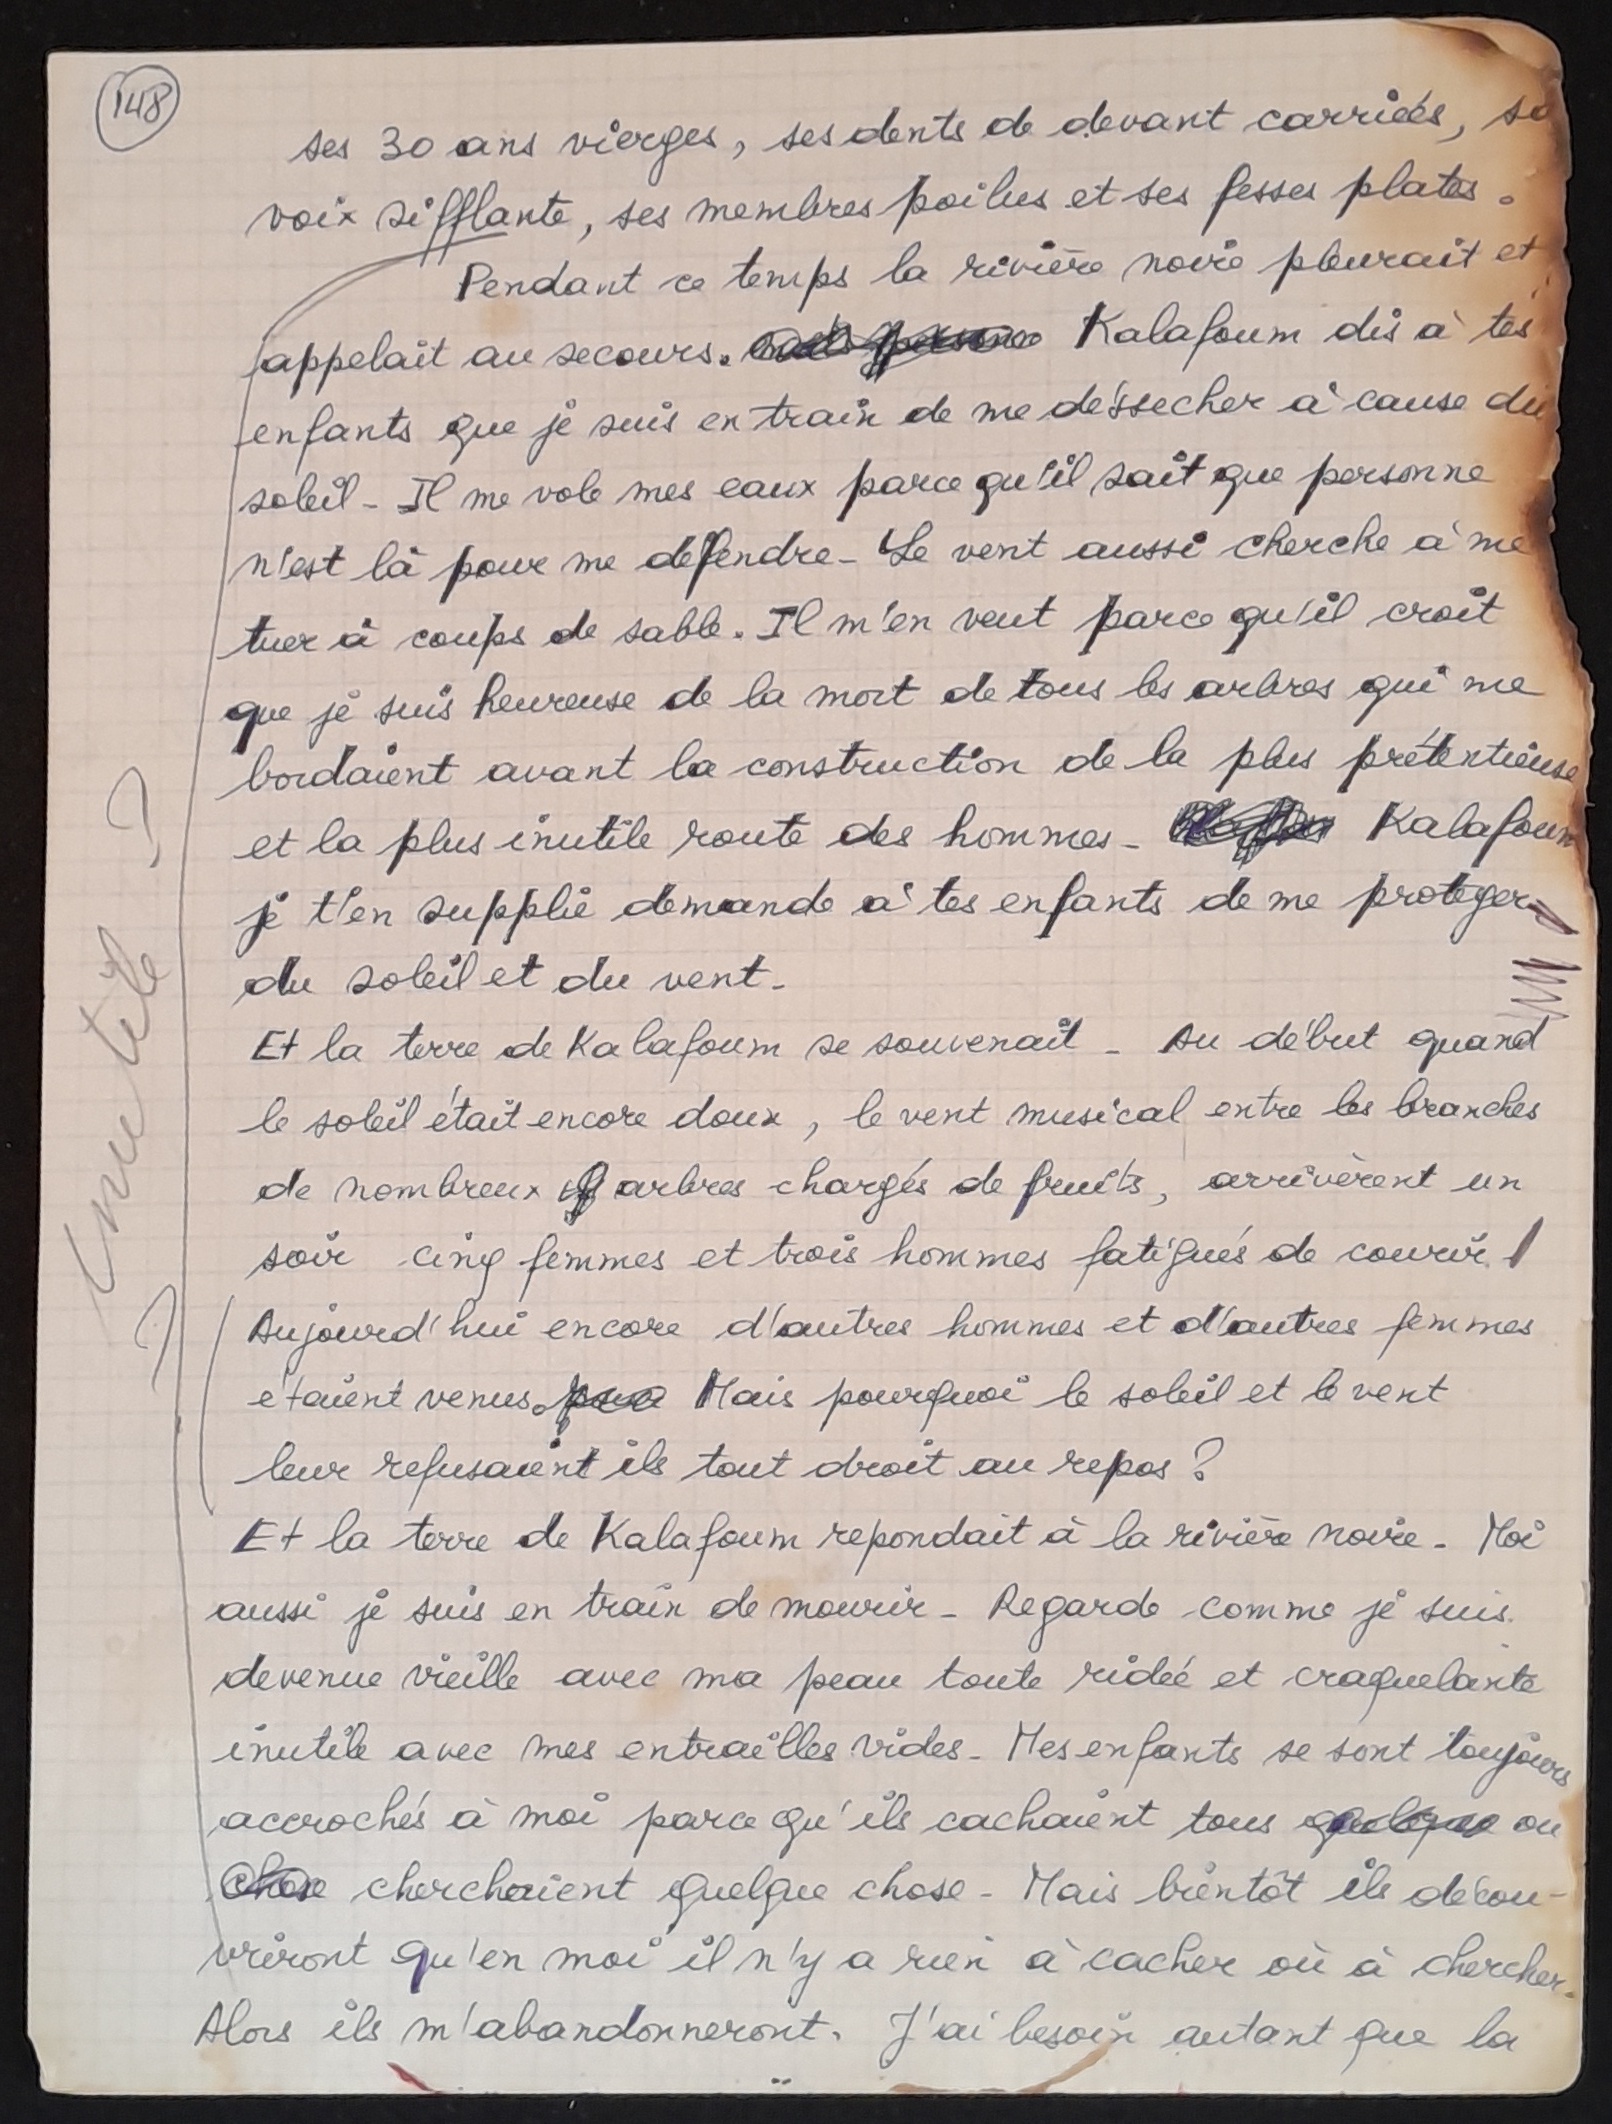 148
ses 30 ans vierges, ses dents de devant carriées, sa
voix sifflante, ses membres poilus et ses fesses plates.
Pendant ce temps la rivière noire pleurait et
appelait au secours. Kalafoum dis à tes
enfants que je suis en train de me déssecher à cause du
soleil - Il me vole mes eaux parce qu'il sait que personne
n'est là pour me défendre - Le vent aussi cherche à me
tuer à coups de sable. Il m'en veut parce qu'il croit
que je suis heureuse de la mort de tous les arbres qui me
bordaient avant la construction de la plus prétentieuse
et la plus inutile route des hommes - Kalafoum
je t'en supplie demande à tes enfants de me proteger
du soleil et du vent -
Et la terre de Kalafoum se souvenait - Au début quand
le soleil était encore doux, le vent musical entre les branches
de nombreux arbres chargés de fruits, arrivèrent un
soir cinq femmes et trois hommes fatigués de courir.
Aujourd'hui encore d'autres hommes et d'autres femmes
étaient venus. Mais pourquoi le soleil et le vent
leur refusaient ils tout droit au repos ?
Et la terre de Kalafoum repondait à la rivière noire - Moi
aussi je suis en train de mourir - Regarde comme je suis
devenue vieille avec ma peau toute ridée et craquelante
inutile avec mes entrailles vides - Mes enfants se sont toujours
accrochés à moi parce qu'ils cachaient tous quelque ou
chose cherchaient quelque chose - Mais bientôt ils décou-
vriront qu'en moi il n'y a rien à cacher où à chercher.
Alors ils m'abandonneront. J'ai besoin autant que la
inutile ?